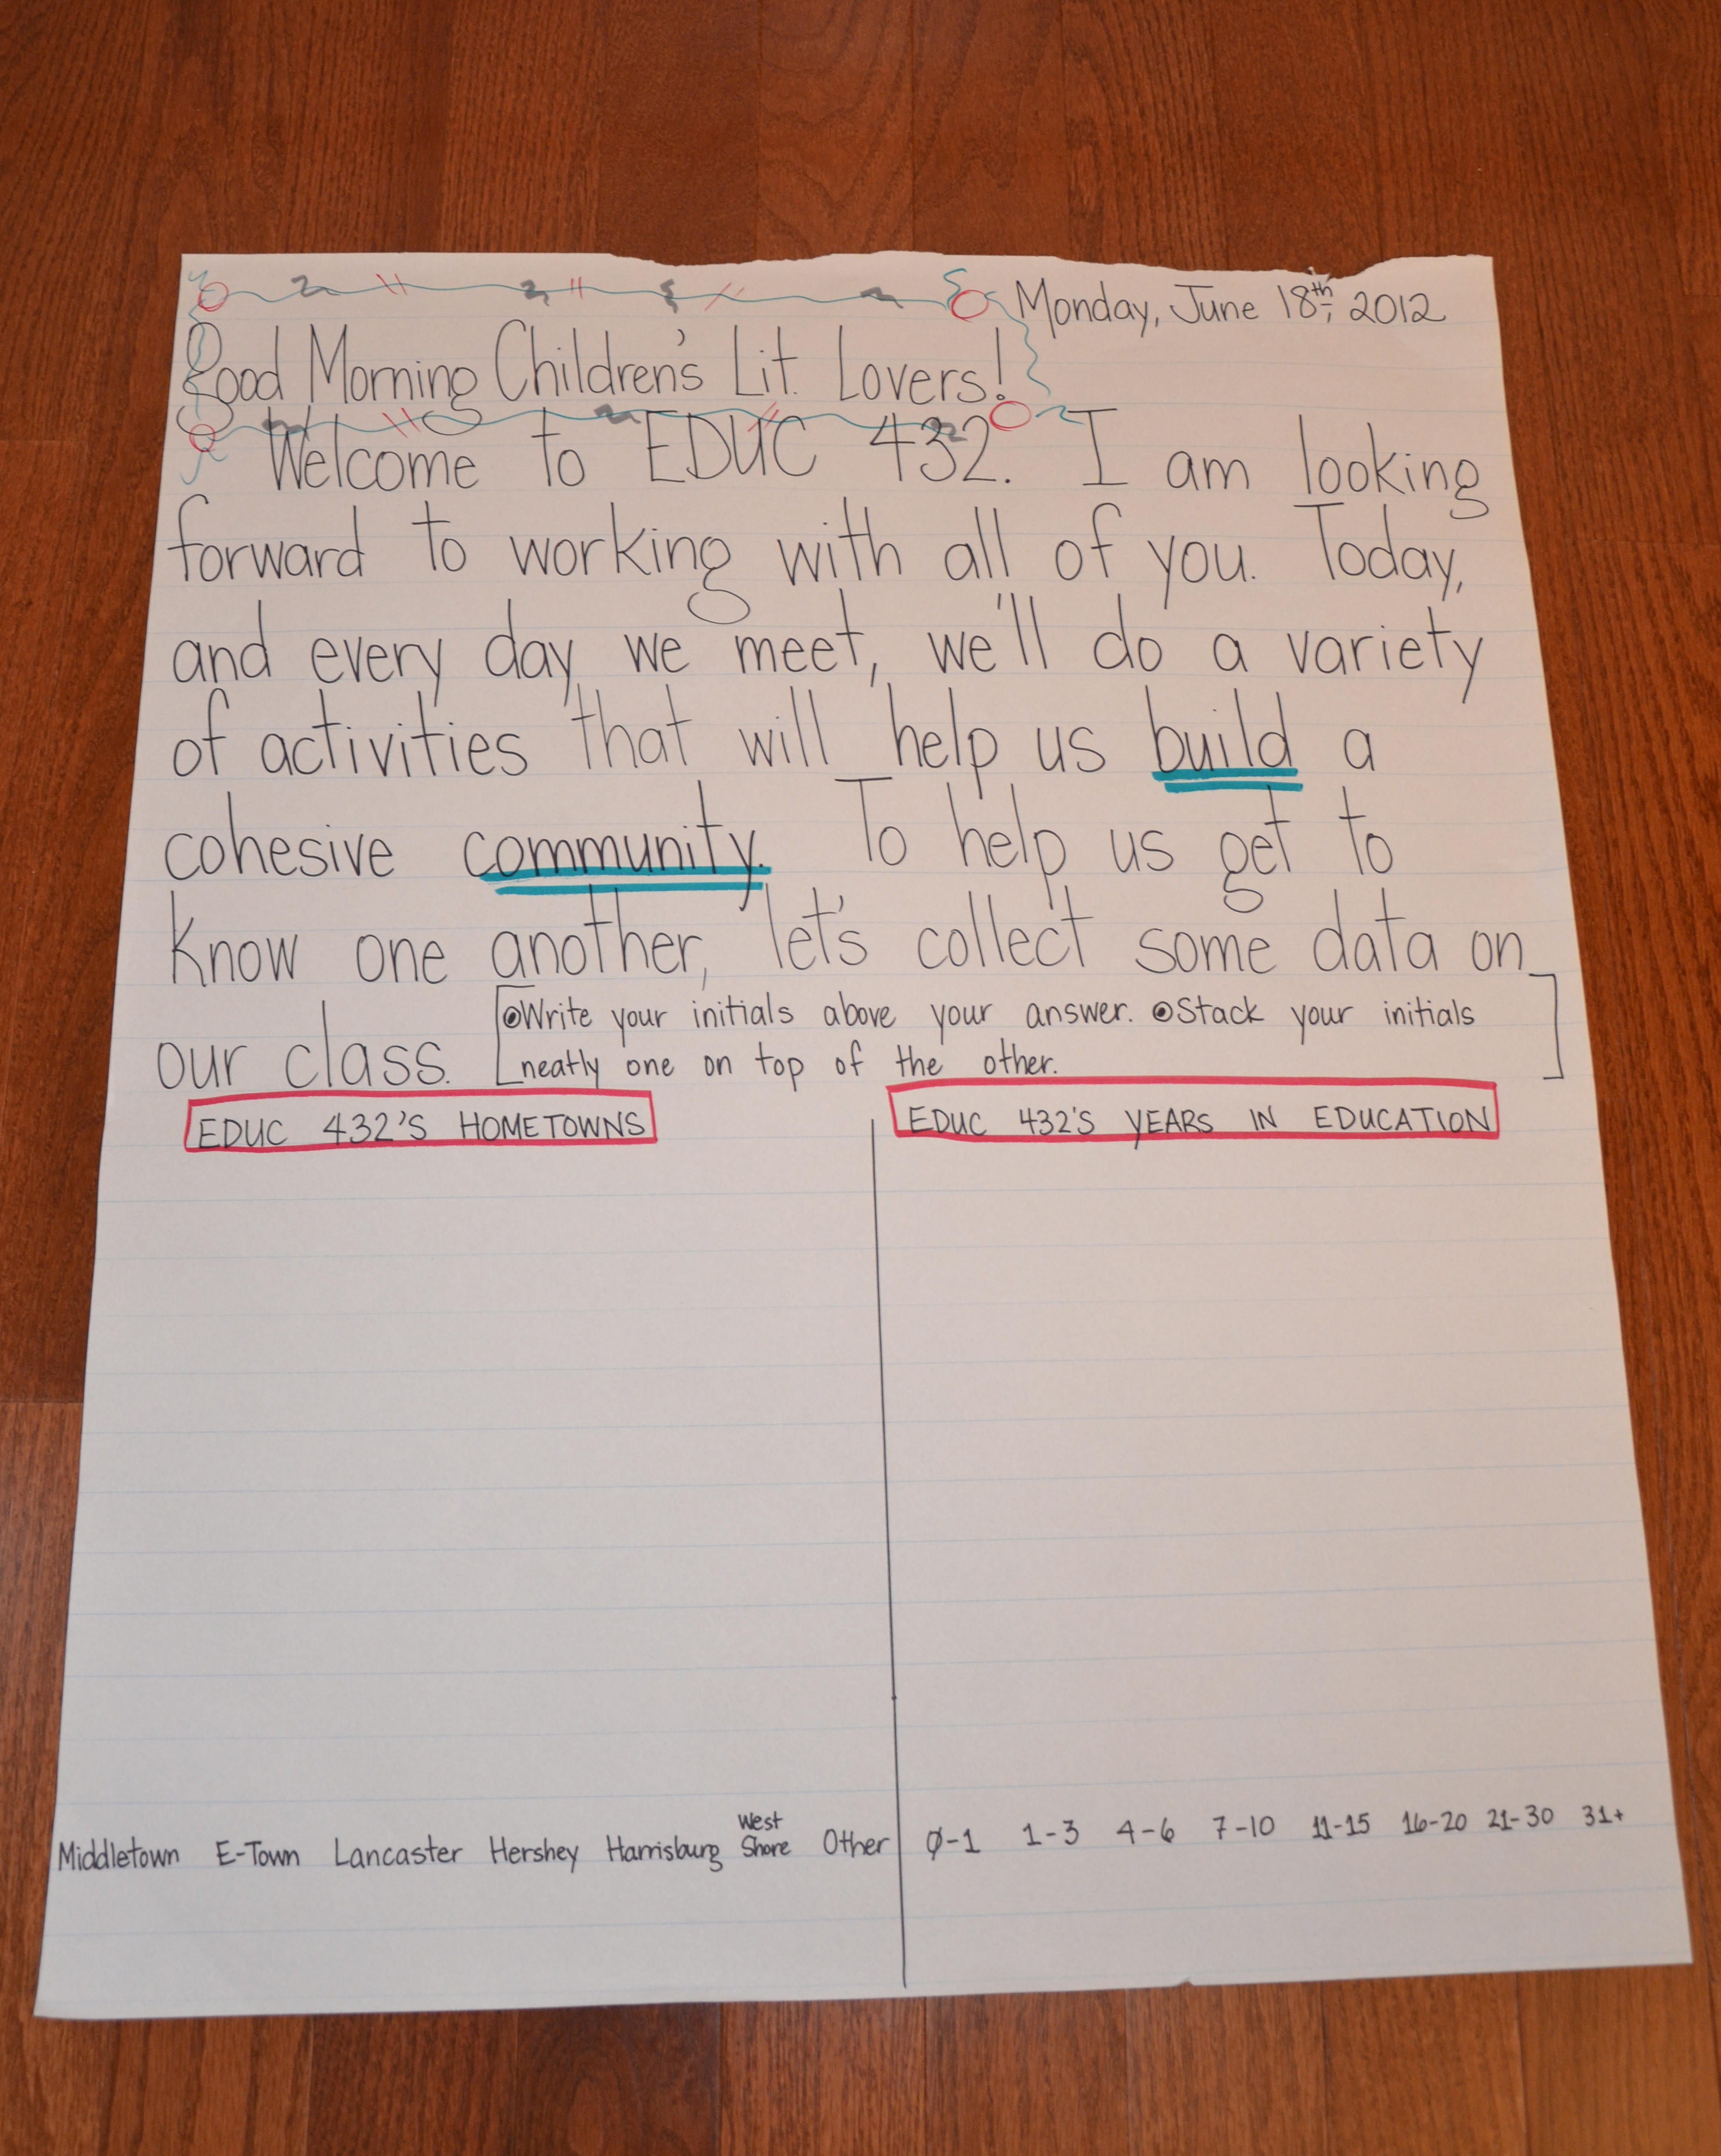 Monday, June 18th, 2012
Good Morning Children's Lit. Lovers!
Welcome to EDUC 432. I am looking
forward to working with all of you. Today,
and every day we meet, we'll do a variety
of activities that will help us build a
cohesive community. To help us get to
know one another, let's collect some data on
our class.
Write your initials above your answer. Stack your initials
neatly one on top of the other.
EDUC 432'S HOMETOWNS
EDUC 432'S YEARS IN EDUCATION
Middletown E-Town Lancaster Hershey Harrisburg West Shore Other
0-1 1-3 4-6 7-10 11-15 16-20 21-30 31+